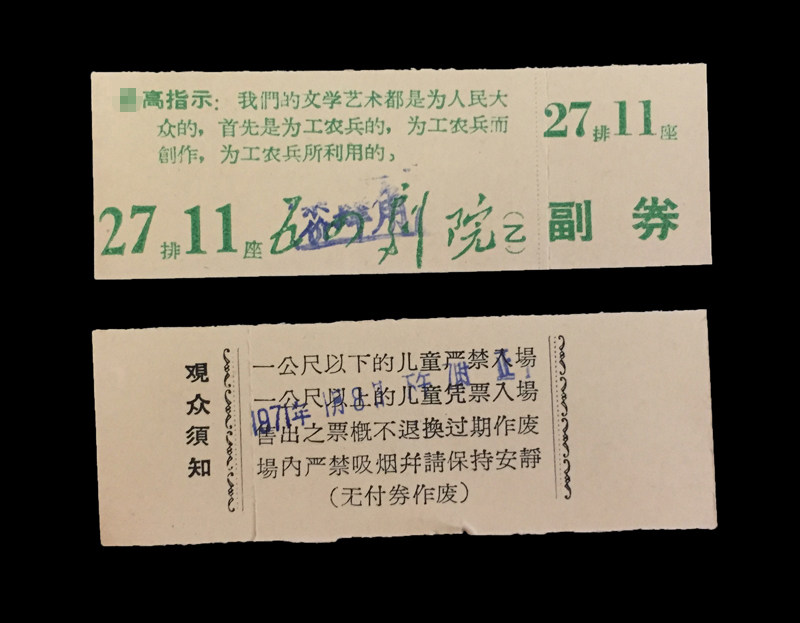 高指示：我們的文学艺术都是为人民大
众的，首先是为工农兵的，为工农兵而
創作，为工农兵所利用的，
27排11座
五四剧院(乙)
27排11座
副券
观众須知
一公尺以下的儿童严禁入場
一公尺以上的儿童凭票入場
售出之票概不退換过期作废
場內严禁吸烟幷請保持安靜
(无付券作废)
1971年1月8日下午1时正